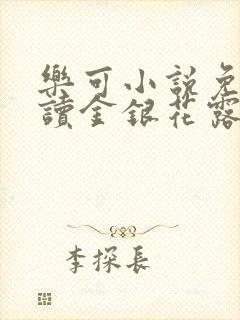 樂可小說免
讀金銀花露
李探長